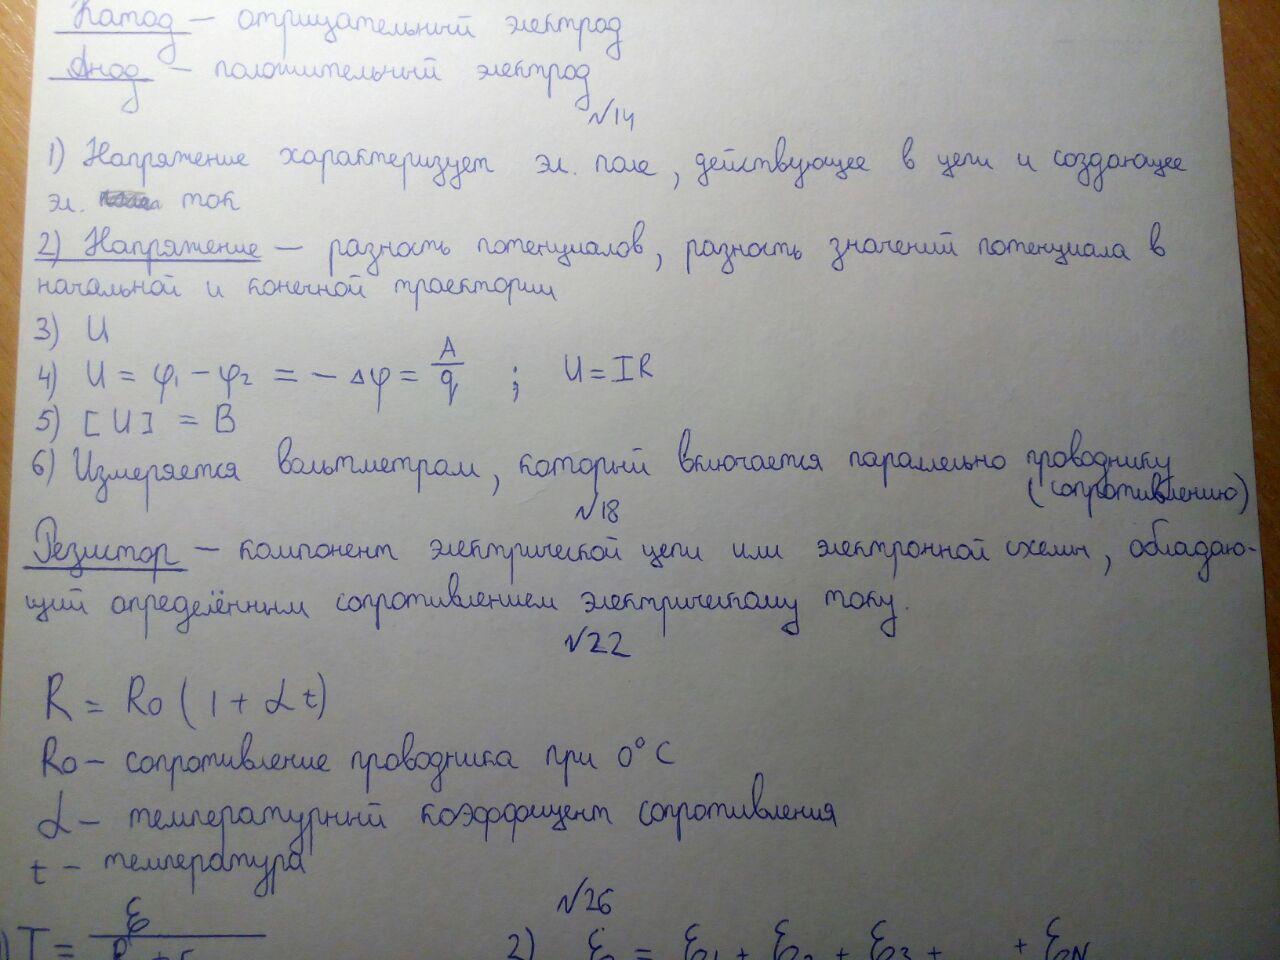 Катод – отрицательный электрод
Анод – положительный электрод
№14
1) Напряжение характеризует эл. поле, действующее в цепи и создающее
эл. ток
2) Напряжение – разность потенциалов, разность значений потенциала в
начальной и конечной траектории
3) U
4) U = φ₁ – φ₂ = – Δφ = A/q ; U = IR
5) [U] = В
6) Измеряется вольтметрам, который включается параллельно проводнику
(сопротивлению)
№18
Резистор – компонент электрической цепи или электронной схемы, обладаю-
щий определённым сопротивлением электрическому току.
№22
R = R₀ (1 + αt)
R₀ – сопротивление проводника при 0°C
α – температурный коэффициент сопротивления
t – температура
№26
) I = ℰ/R + r 2) ℰ = ℰ₁ + ℰ₂ + ℰ₃ + ... + ℰN